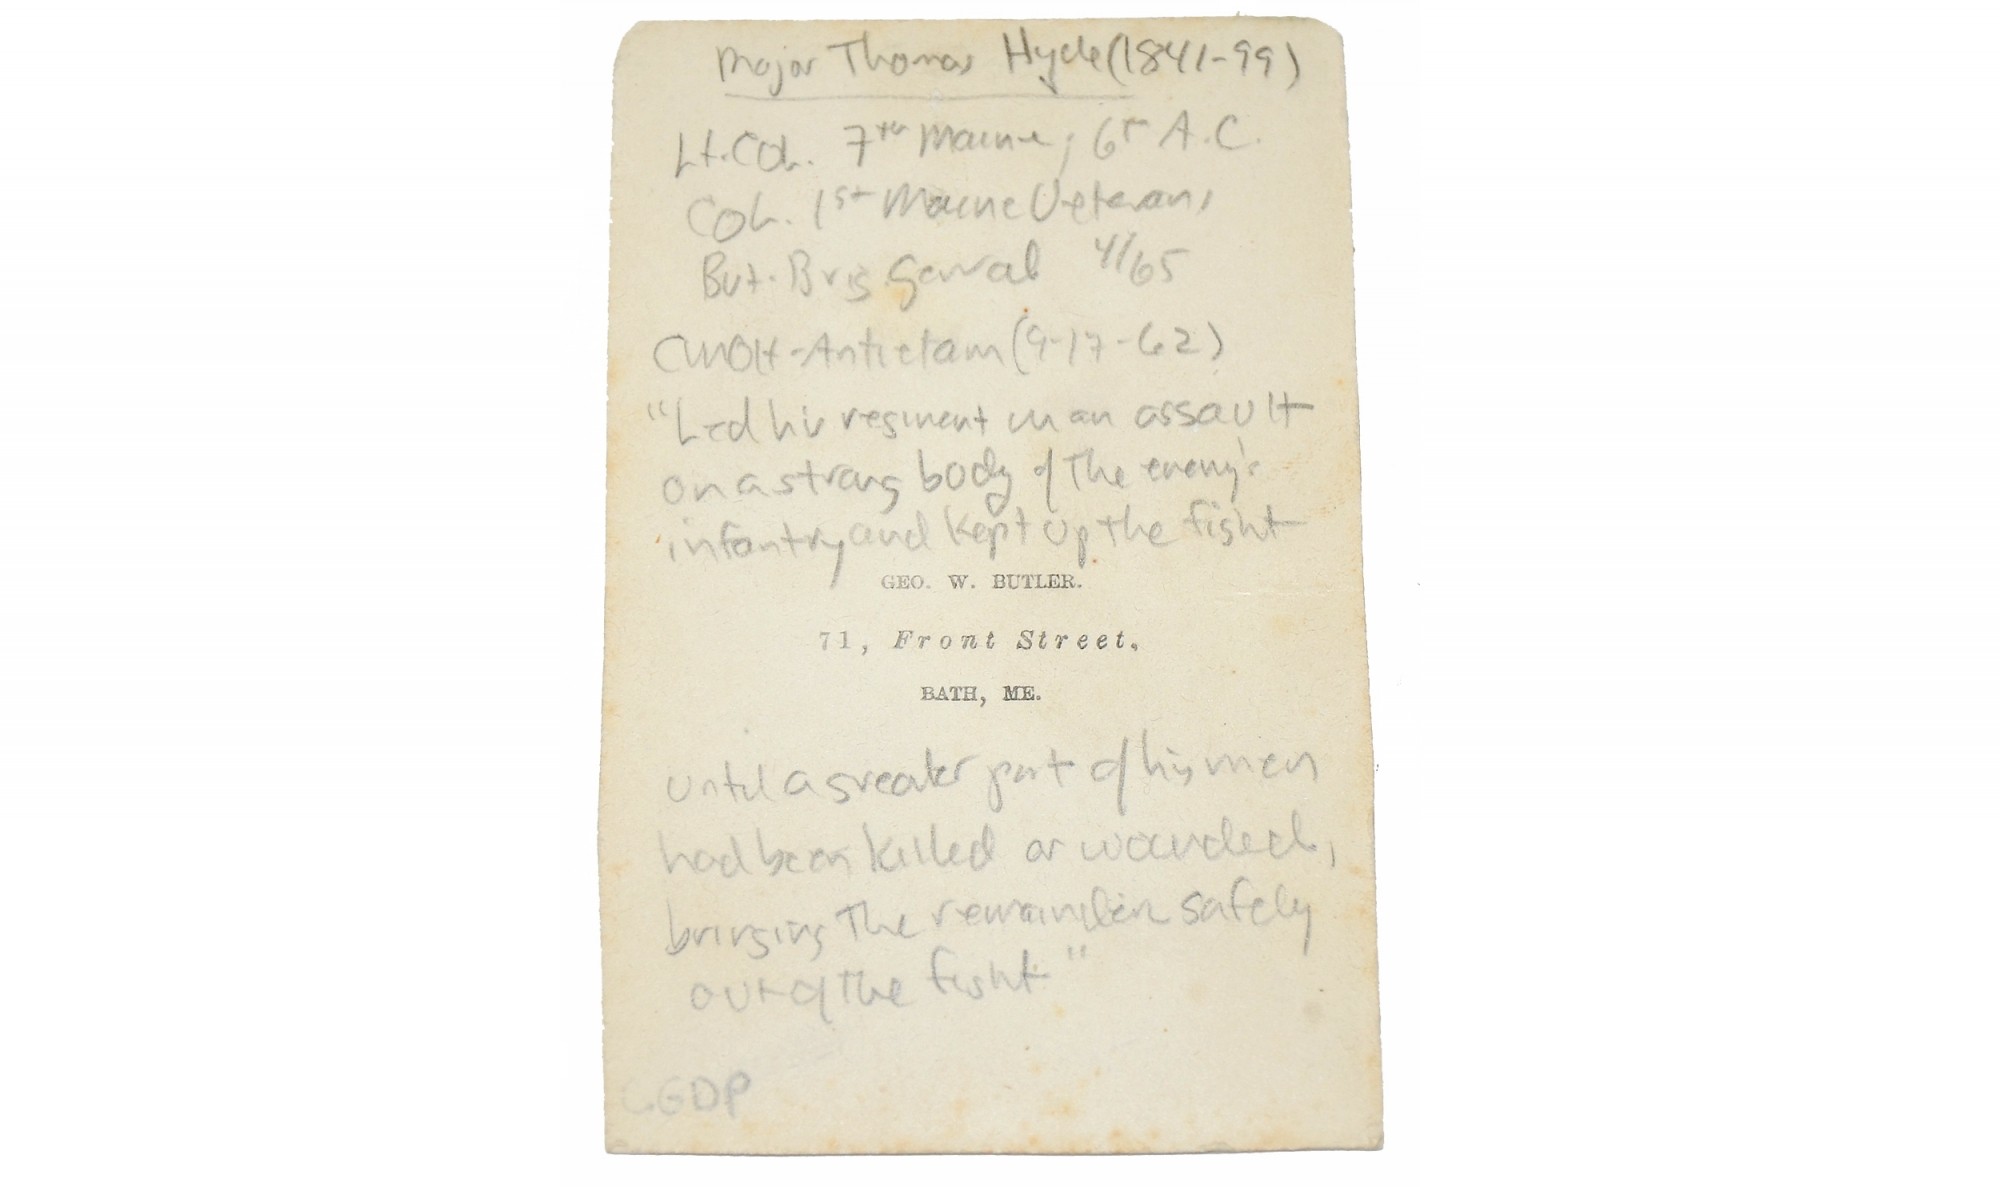 Major Thomas Hyde (1841-99)
Lt. Col. 7th Maine, 6th A.C.
Col. 1st Maine Veterans
Bvt. Brig General 4/65
CMOH - Antietam (9-17-62)
"Led his regiment in an assault
on a strong body of the enemy's
infantry and kept up the fight
GEO. W. BUTLER.
71, Front Street,
BATH, ME.
until a greater part of his men
had been killed or wounded,
bringing the remainder safely
out of the fight"